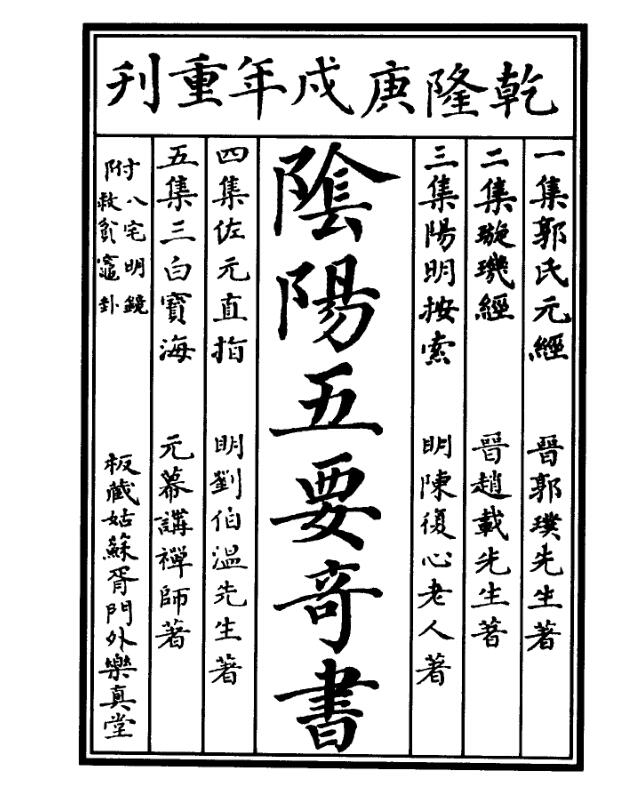 乾隆庚戌年重刊
一集郭氏元經 晉郭璞先生著
二集璇璣經 晉趙載先生著
三集陽明按索 明陳復心老人著
陰陽五要奇書
四集佐元直指 明劉伯溫先生著
五集三白寶海 元幕講禪師著
附八宅明鏡
救貧竈卦
板藏姑蘇胥門外樂真堂